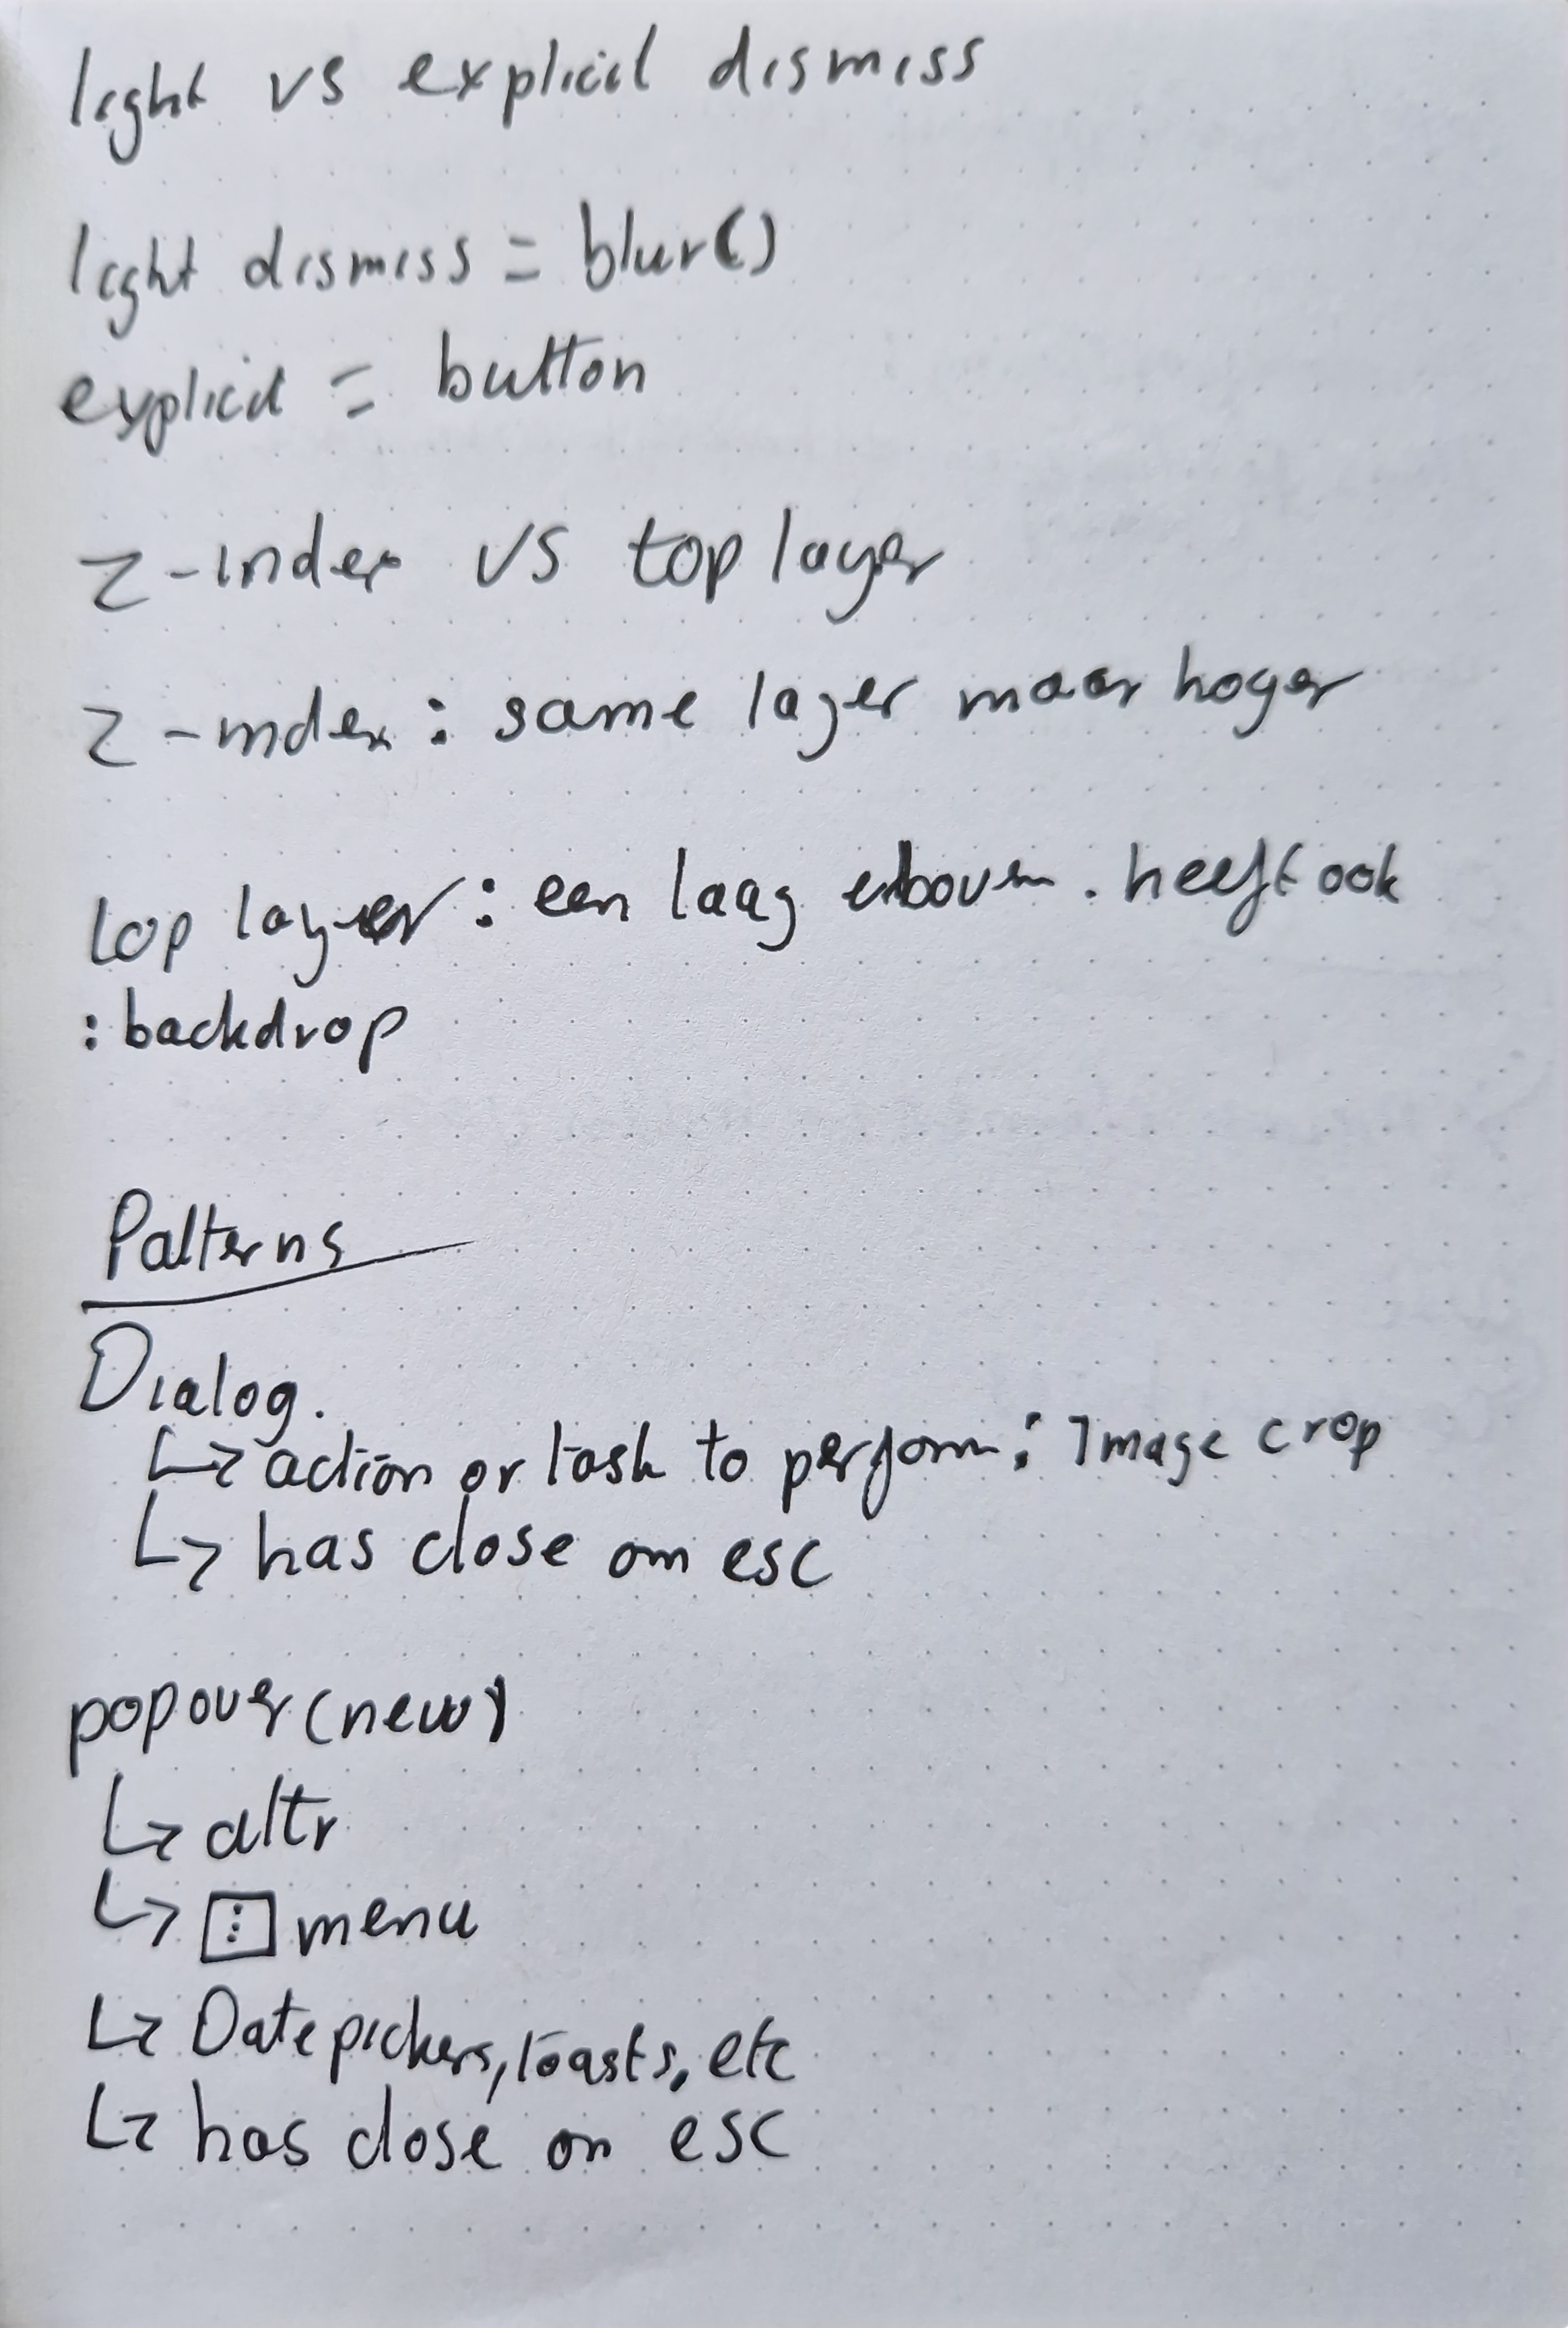 light vs explicit dismiss
light dismiss = blur()
explicit = button
z-index vs top layer
z-index: same layer maar hoger
top layer: een laag erboven. heeft ook
:backdrop
Patterns
Dialog.
↳ action or task to perform: Image crop
↳ has close on esc
popover (new)
↳ attr
↳ ⋮ menu
↳ Datepickers, toasts, etc
↳ has close on esc